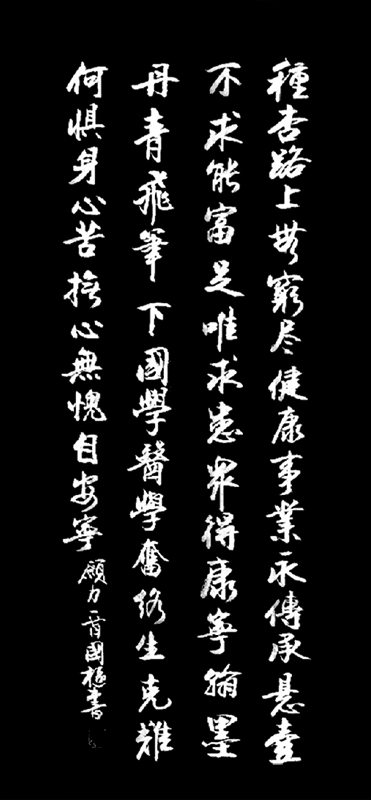 種杏路上無窮尽健康事業永傳承悬壺
不求能富足唯求患眾得康寧翰墨
丹青飛筆下國學醫學奮終生克難
何惧身心苦捫心無愧自安寧
願力一首國樞書